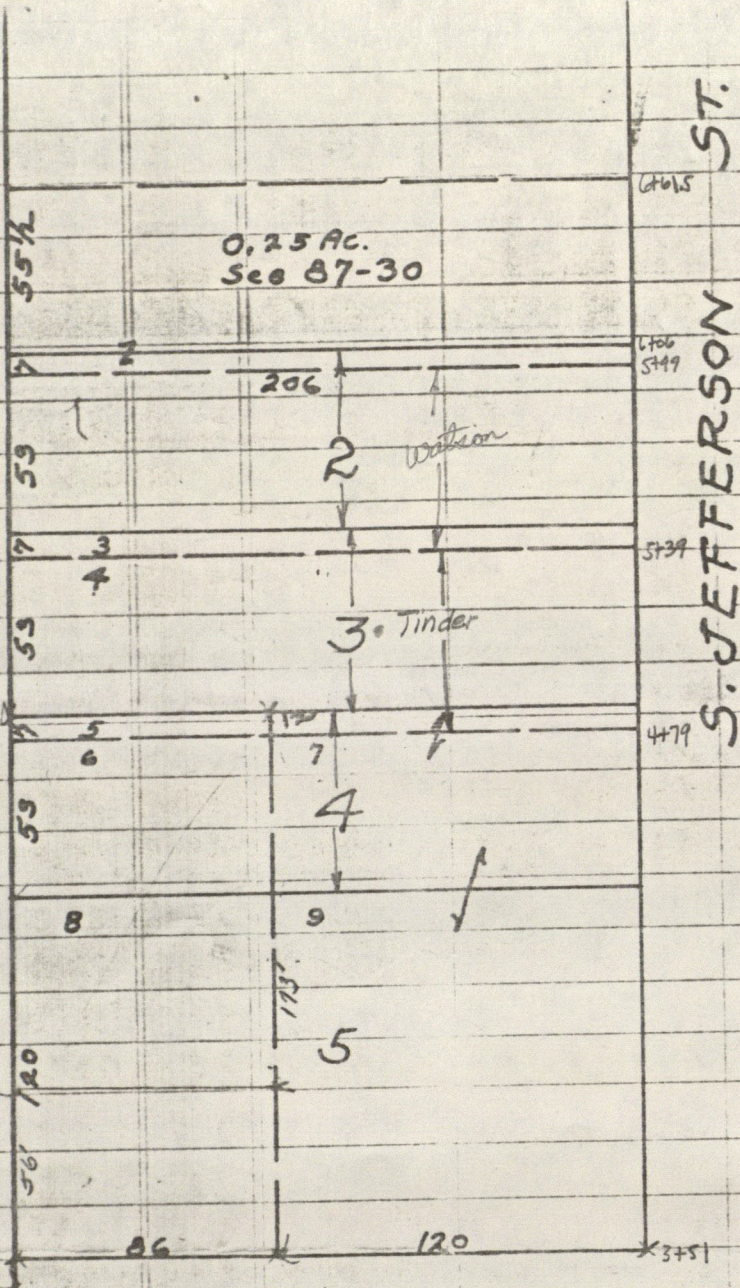 S. JEFFERSON ST.
6+61.5
55 1/2
0.25 Ac.
See 87-30
6+06
2
7
5+99
206
1
59
2
Watson
7
3
5+39
4
53
3. Tinder
5
7
4+79
6
7
53
4
8
9
173'
5
120
56'
86
120
3+51